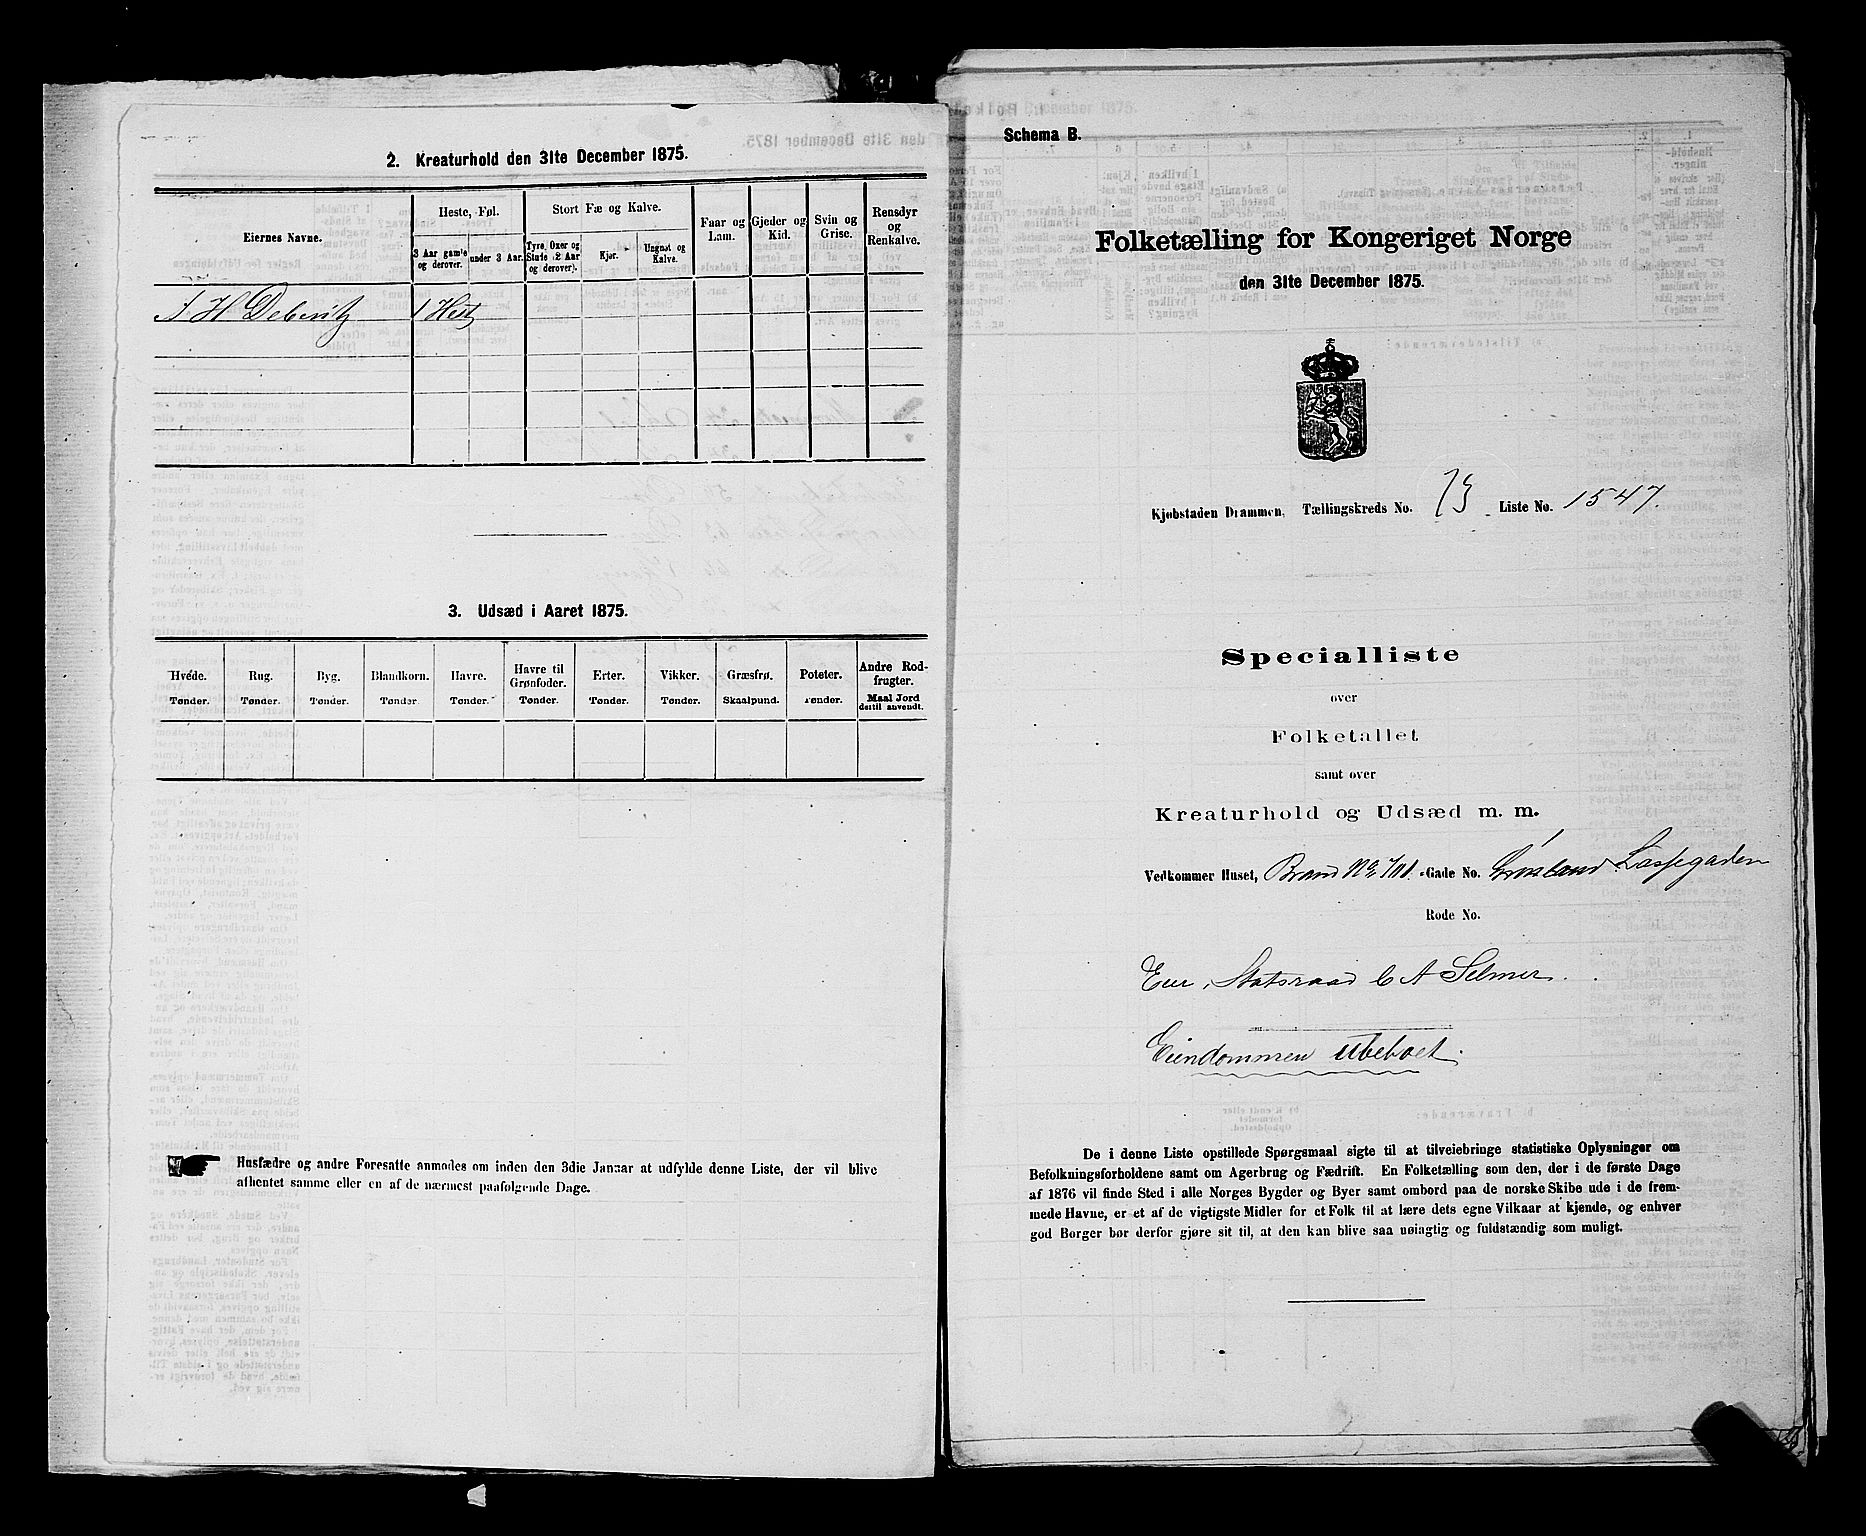 2. Kreaturhold den 31te December 1875.
Eiernes Navne.
Heste, Føl.
3 Aar gamle og derover.
under 3 Aar.
Stort Fæ og Kalve.
Tyre, Oxer og Stude (2 Aar og derover).
Kjør.
Ungnøt og Kalve.
Faar og Lam.
Gjeder og Kid.
Svin og Grise.
Rensdyr og Renkalve.
J H Deberitz 1 Hest
3. Udsæd i Aaret 1875.
Hvede. Rug. Byg. Blandkorn. Havre. Havre til Grønfoder. Erter. Vikker. Græsfrø. Poteter. Andre Rodfrugter.
Tønder. Tønder. Tønder. Tønder. Tønder. Tønder. Tønder. Tønder. Skaalpund. Tønder. Maal Jord dertil anvendt.
Husfædre og andre Foresatte anmodes om inden den 3die Januar at udfylde denne Liste, der vil blive
afhentet samme eller en af de nærmest paafølgende Dage.
Schema B.
Folketælling for Kongeriget Norge
den 31te December 1875.
Kjøbstaden Drammen, Tællingskreds No. Liste No. 1547.
Specialliste
over
Folketallet
samt over
Kreaturhold og Udsæd m. m.
Vedkommer Huset, Brand No 701. Gade No. Grønland
Rode No.
Eier, Statsraad C A Selmer.
Eiendommen ubeboet.
De i denne Liste opstillede Spørgsmaal sigte til at tilveiebringe statistiske Oplysninger om
Befolkningsforholdene samt om Agerbrug og Fædrift. En Folketælling som den, der i de første Dage
af 1876 vil finde Sted i alle Norges Bygder og Byer samt ombord paa de norske Skibe ude i de frem-
mede Havne, er et af de vigtigste Midler for et Folk til at lære dets egne Vilkaar at kjende, og enhver
god Borger bør derfor gjøre sit til, at den kan blive saa nøiagtig og fuldstændig som muligt.